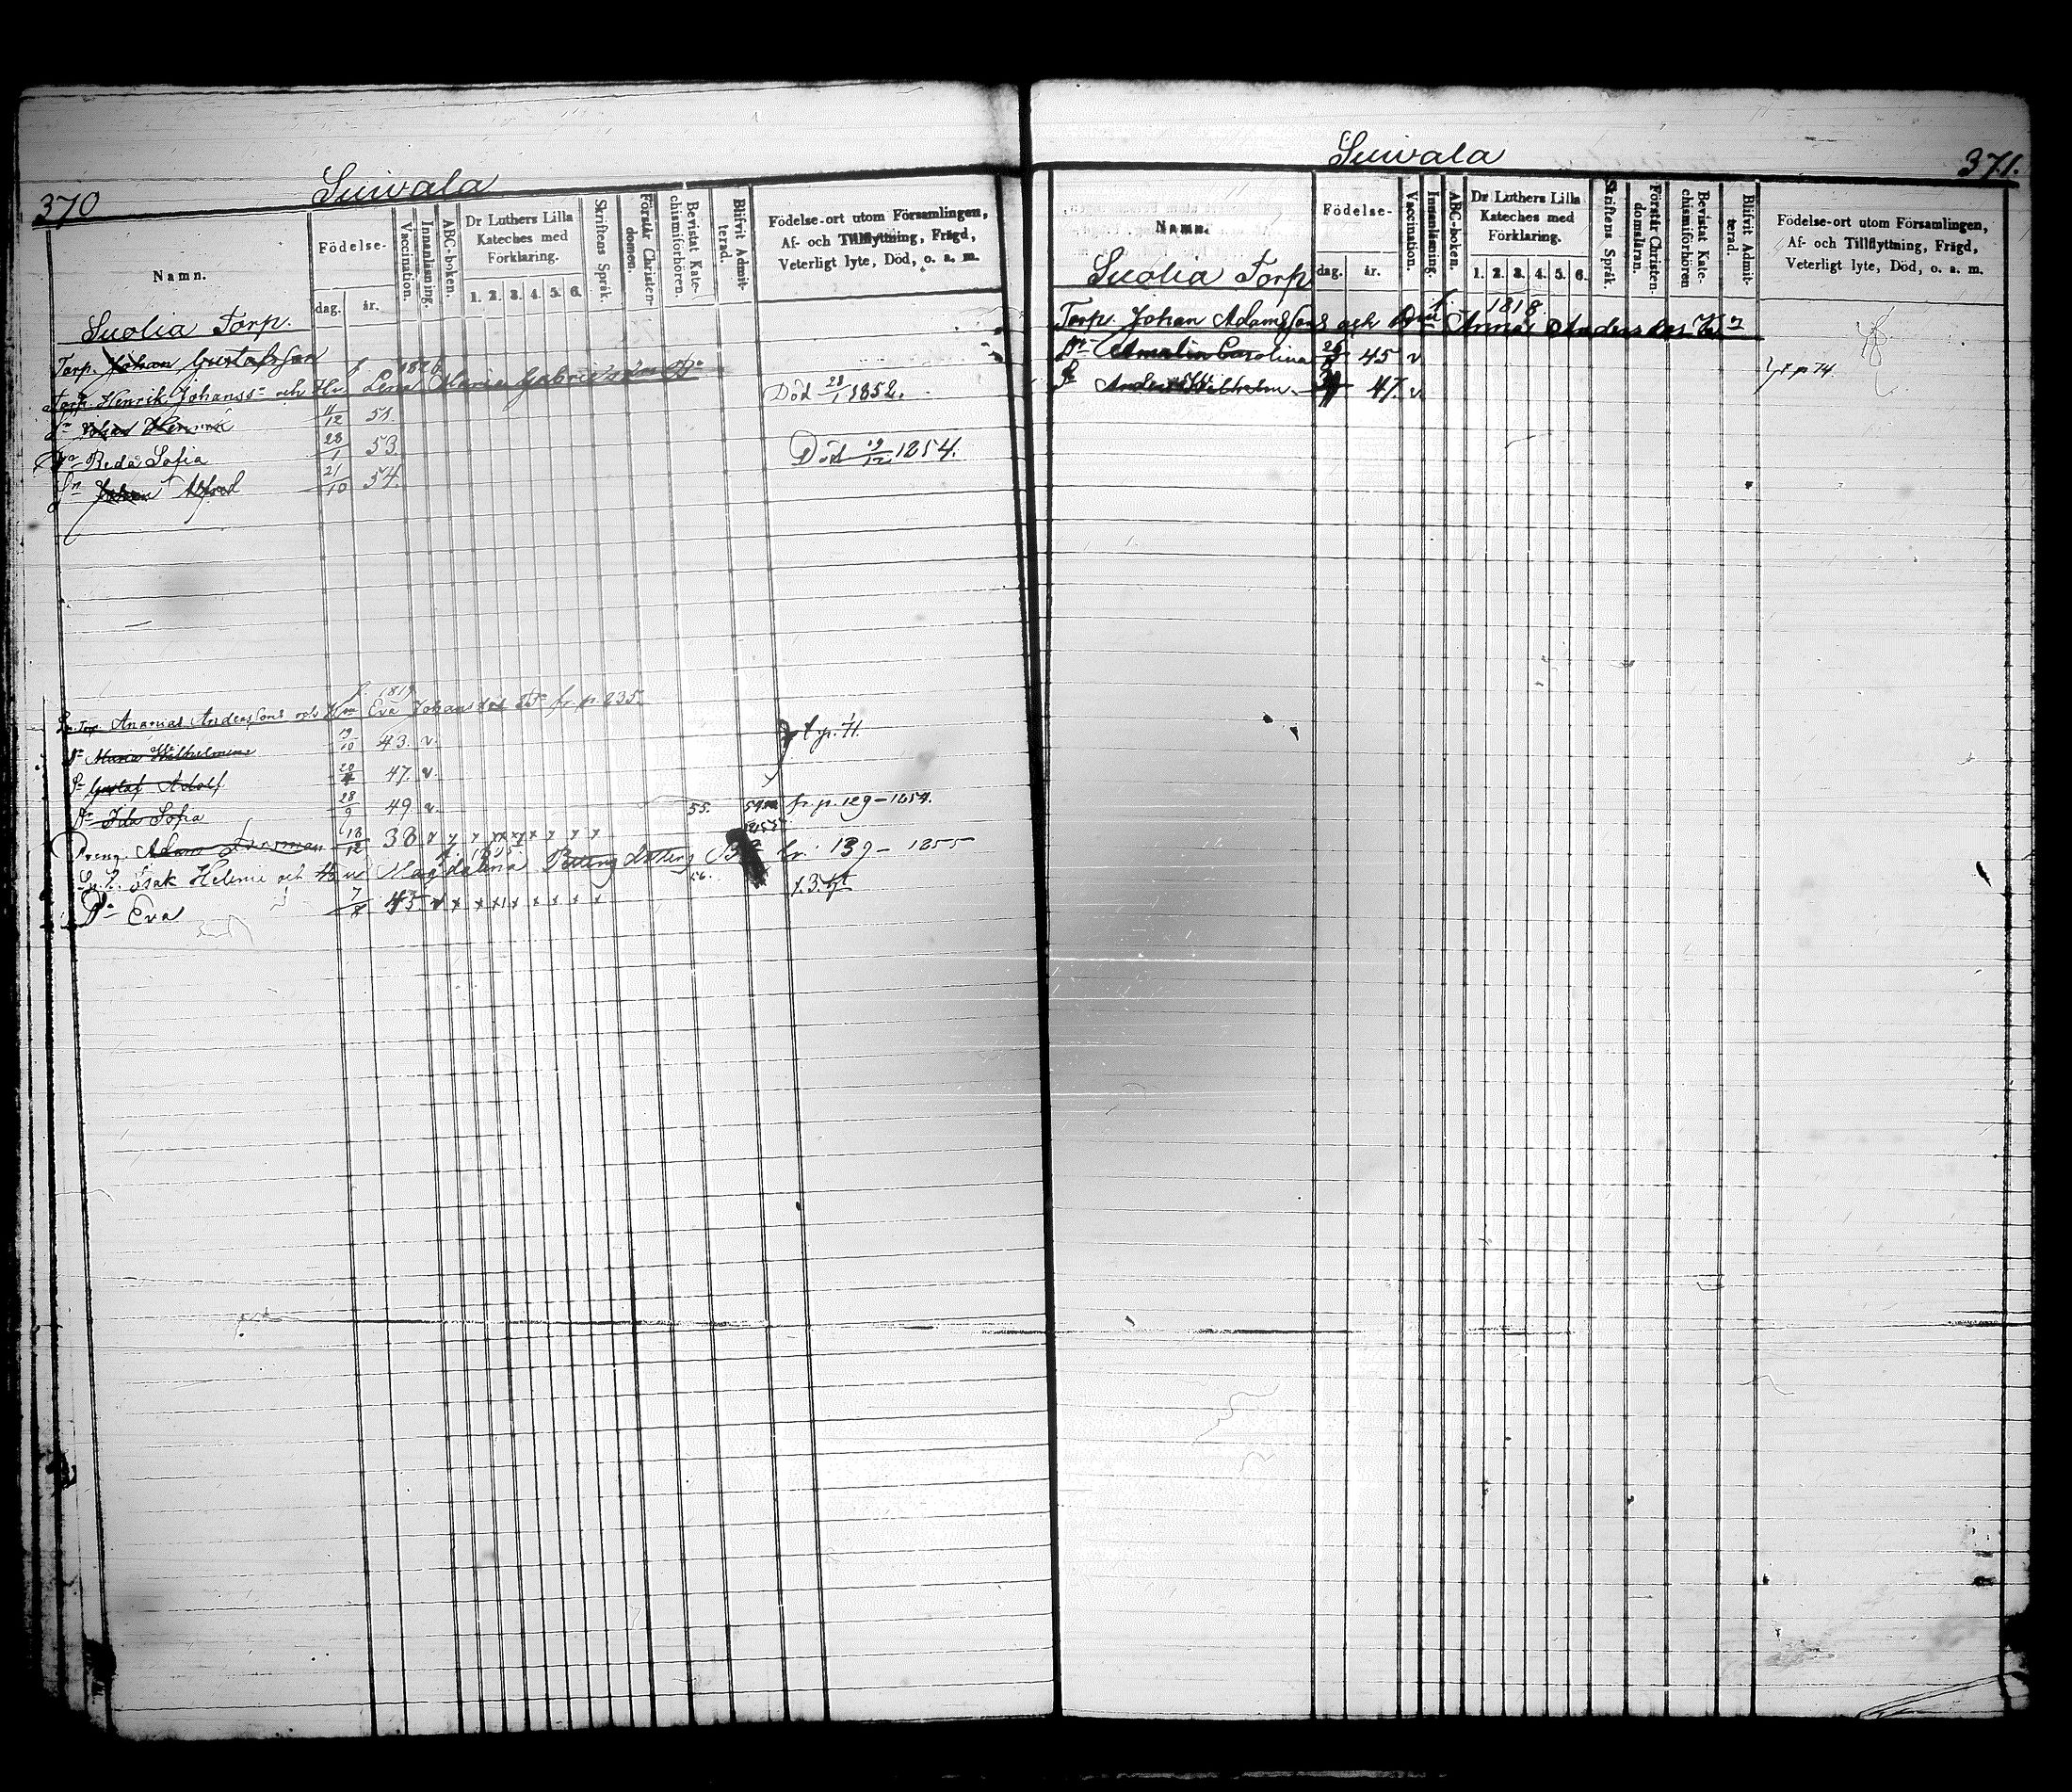 370
Suivala
Namn.
Födelse-
dag.
år.
Vaccination.
Innanläsning.
ABC-boken.
Dr Luthers Lilla
Kateches med
Förklaring.
1. 2. 3. 4. 5. 6.
Skriftens Språk.
Förstår Christen-
domen.
Bevistat Kate-
chismiförhören.
Blifvit Admit-
terad.
Födelse-ort utom Församlingen,
Af- och Tillflyttning, Frägd,
Veterligt lyte, Död, o. a. m.
Suolia Torp.
Torp. Johan Gustafsson
f. 1826
Torp. Henrik Johanss= och Hu Lena Maria
Död 28/1 1852.
Sn Johan Henrik 11/12 51.
Dr Beda Sofia 28/1 53
Död 19/12 1854.
Sn Johan Alfred 21/10 54.
f. 1819
Torp. Ananias Anderssons och Hu Eva Johansdr fr. p. 235.
Dr Maria Wilhelmina 19/10 43. v.
t. p. 71.
Sn Gustaf Adolf 20/4 47. v.
Dr Ida Sofia 28/9 49 v. 55. fr. p. 129-1854.
Dreng. Adam 18/12 38 v x x xx x x x x x
Isak Helenius och Hu Magdalena fr. 139 - 1855
56.
Dr Eva 7/8 45 v x x x x x x x x
Suivala
371.
Namn.
Födelse-
dag.
år.
Vaccination.
Innanläsning.
ABC-boken.
Dr Luthers Lilla
Kateches med
Förklaring.
1. 2. 3. 4. 5. 6.
Skriftens Språk.
Förstår Christen-
domsläran.
Bevistat Kate-
chismiförhören
Blifvit Admit-
terad.
Födelse-ort utom Församlingen,
Af- och Tillflyttning, Frägd,
Veterligt lyte, Död, o. a. m.
Suolia Torp
f. 1818.
Torp. Johan Adamssons och Anna Andersdr
Dr Amalia Carolina 45 v
t. p. 74.
Sn Anders Wilhelm 47. v.